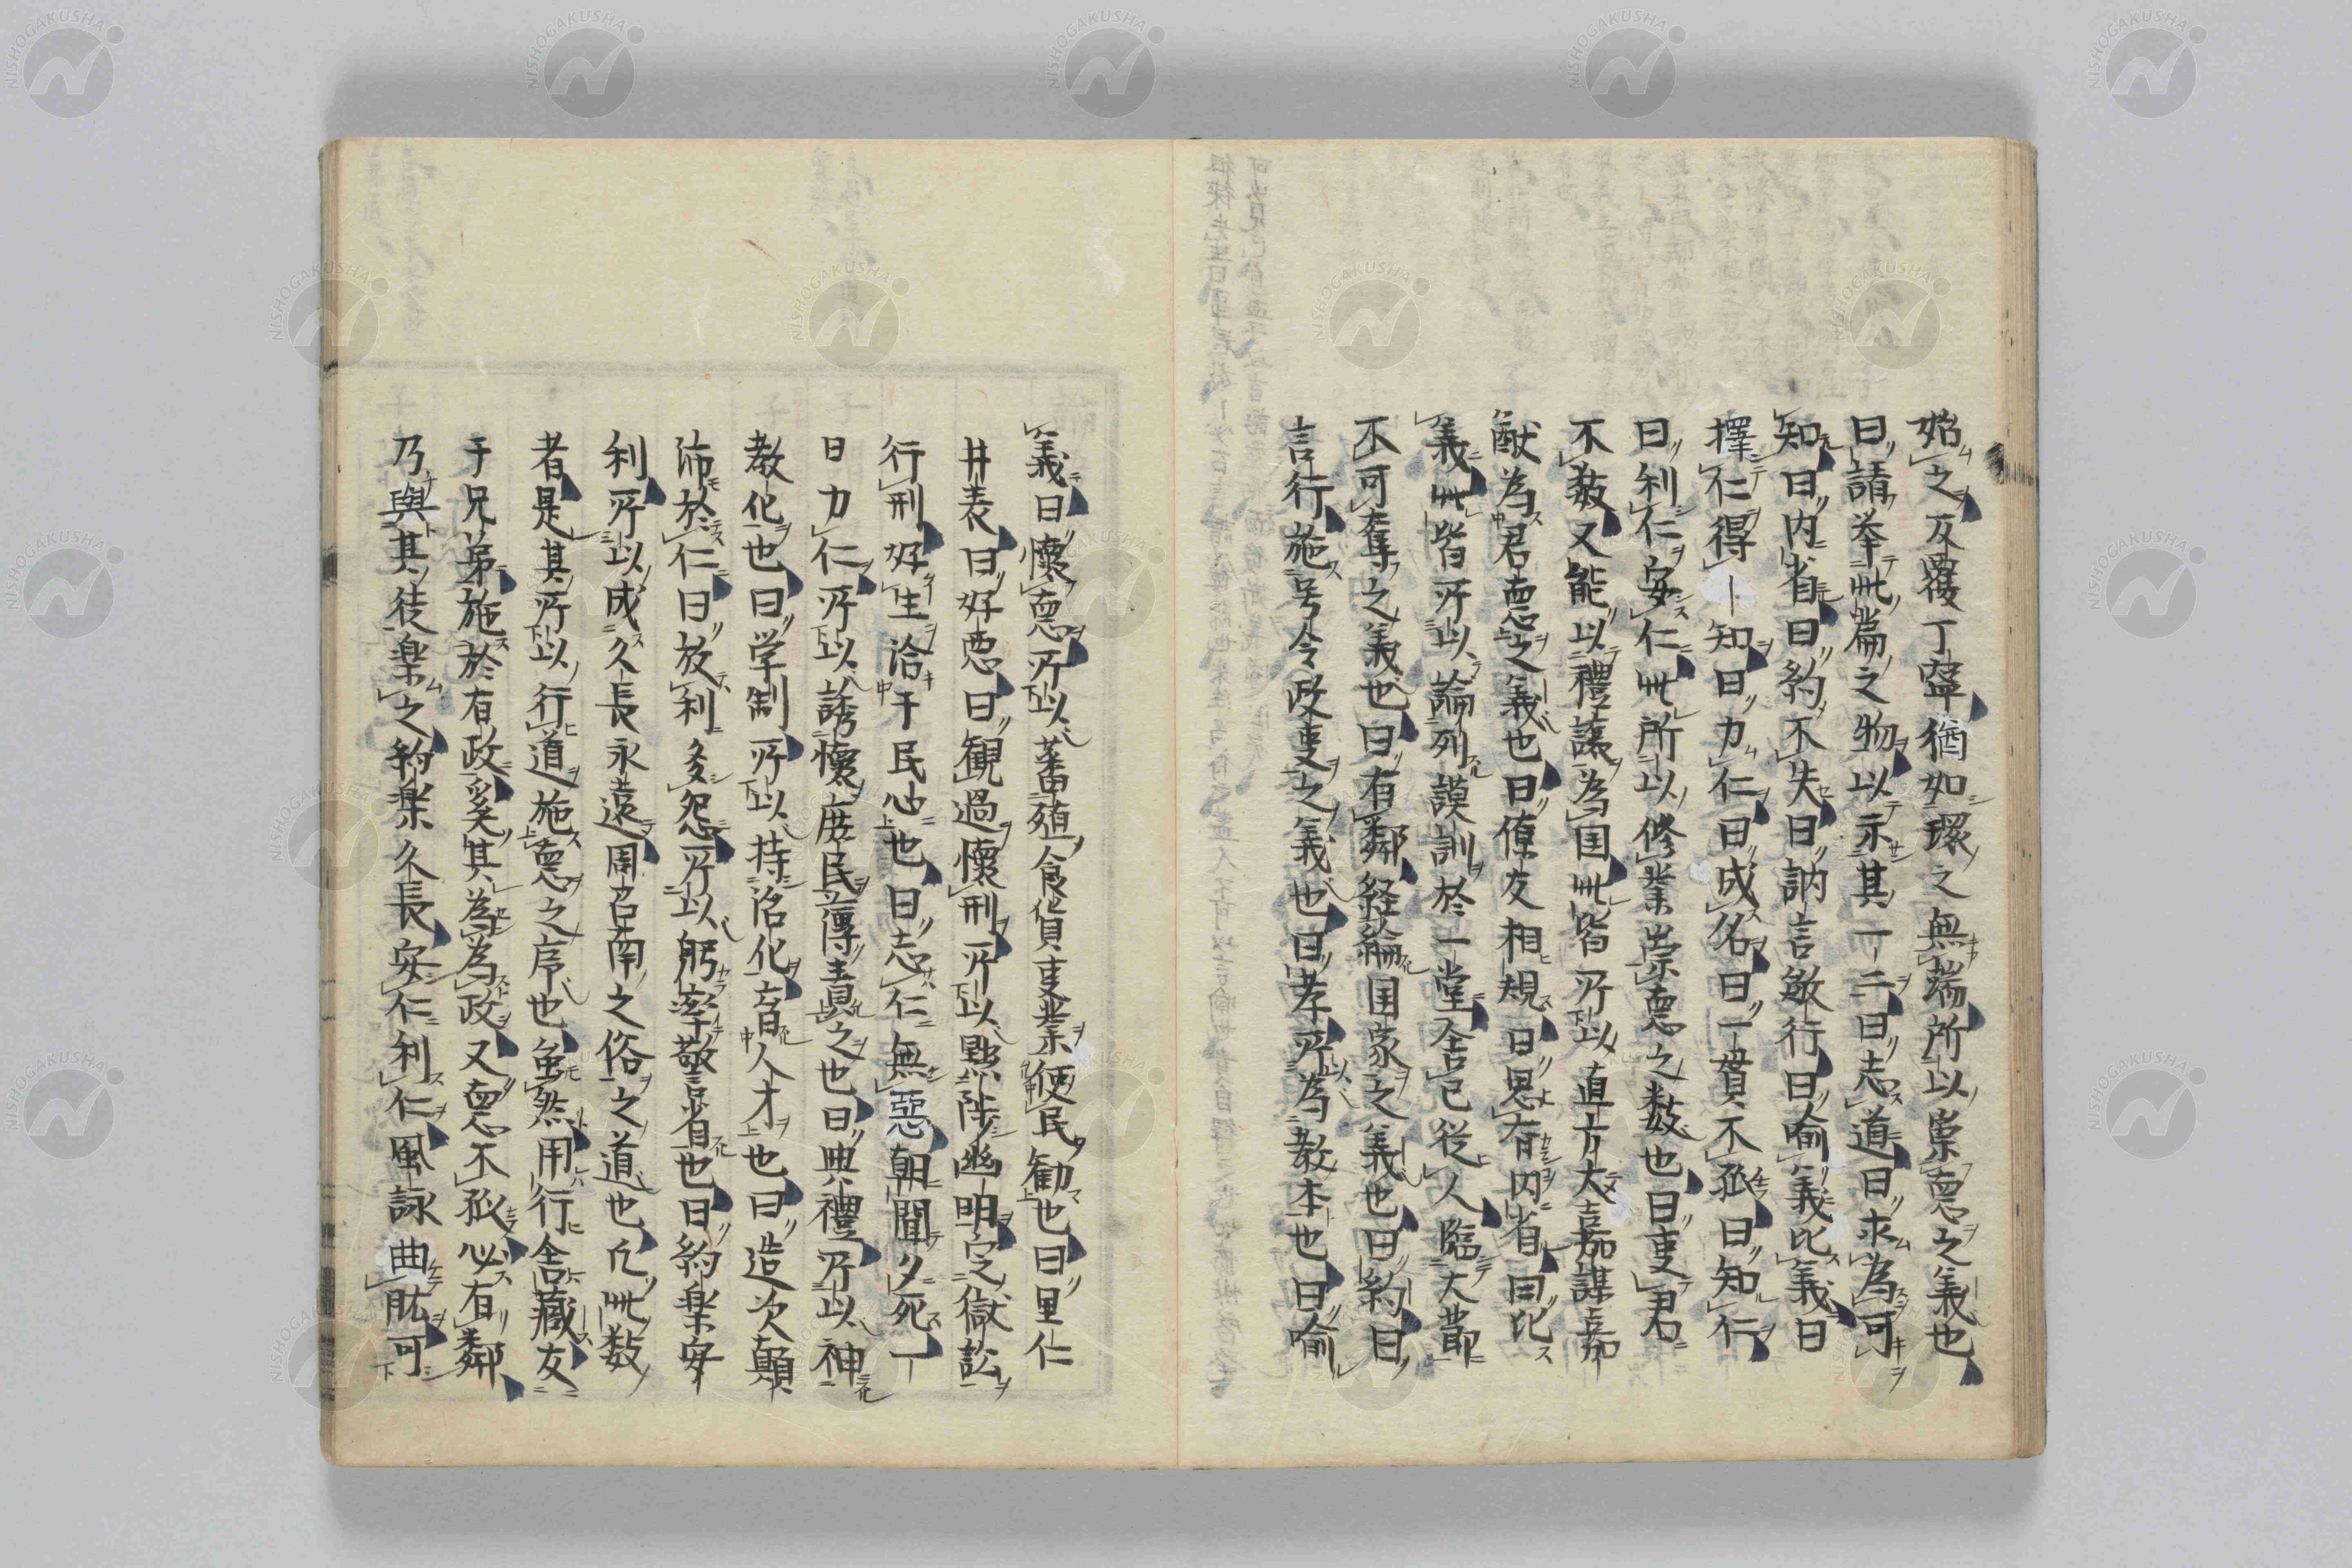 始之反覆丁寧猶如環之無端所以崇悳之義也
曰請挙此篇之物以示其一二曰志道曰求為可
知曰内省曰約不失曰訥言敏行曰喻義比義曰
擇仁得知曰力仁曰成名曰一貫不孤曰知仁
曰利仁安仁此所以修業崇悳之数也曰事君
不数又能以禮讓為国此皆所以直方大嘉謀嘉
猷為君悳之義也曰僚友相規曰思有内省曰比
義此皆所以論列謨訓於一堂舎己従人臨大節
不可奪之義也曰有鄰経綸国家之義也曰約曰
言行施号令政事之義也曰孝所以為教本也曰喻
義曰懷悳所以蕃殖食貨事業便民勧也曰里仁
井表曰好悪曰観過懷刑所以黜陟幽明定獄訟
行刑好生洽于民心也曰志仁無惡朝聞夕死一
日力仁所以誘懷庶民薄責之也曰典禮所以神
教化也曰学制所以持治化育人才也曰造次顛
沛於仁曰放利多怨所以躬率敬言省也曰約楽安
利所以成久長永遠周召南之俗之道也凡此数
者是其所以行道施悳之序也虽然用行舎藏友
于兄弟施於有政奚其為為政又悳不孤必有鄰
乃與其徒楽之約楽久長安仁利仁風詠曲肱可